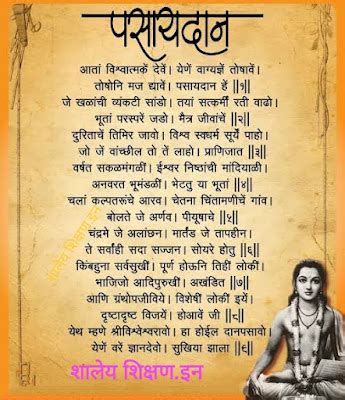 पसायदान
आतां विश्वात्मकें देवें। येणें वाग्यज्ञें तोषावें।
तोषोनि मज द्यावें। पसायदान हें ||१||
जे खळांची व्यंकटी सांडो। तयां सत्कर्मीं रती वाढो।
भूतां परस्परें जडो। मैत्र जीवांचें ||२||
दुरिताचें तिमिर जावो। विश्व स्वधर्म सूर्ये पाहो।
जो जें वांच्छील तो तें लाहो। प्राणिजात ||३||
वर्षत सकळमंगळीं। ईश्वर निष्ठांची मांदियाळी।
अनवरत भूमंडळीं। भेटतु या भूतां ||४||
चलां कल्पतरूंचे आरव। चेतना चिंतामणीचें गांव।
बोलते जे अर्णव। पीयूषाचे ||५||
चंद्रमे जे अलांछन। मार्तंड जे तापहीन।
ते सर्वांही सदा सज्जन। सोयरे होतु ||६||
किंबहुना सर्वसुखीं। पूर्ण होऊनि तिहीं लोकीं।
भाजिजो आदिपुरुखीं। अखंडित ||७||
आणि ग्रंथोपजीविये। विशेषीं लोकीं इयें।
दृष्टादृष्ट विजयें। होआवें जी ||८||
येथ म्हणे श्रीविश्वेश्वरावो। हा होईल दानपसावो।
येणें वरें ज्ञानदेवो। सुखिया झाला ||९||
शालेय शिक्षण.इन
शालेय शिक्षण.इन